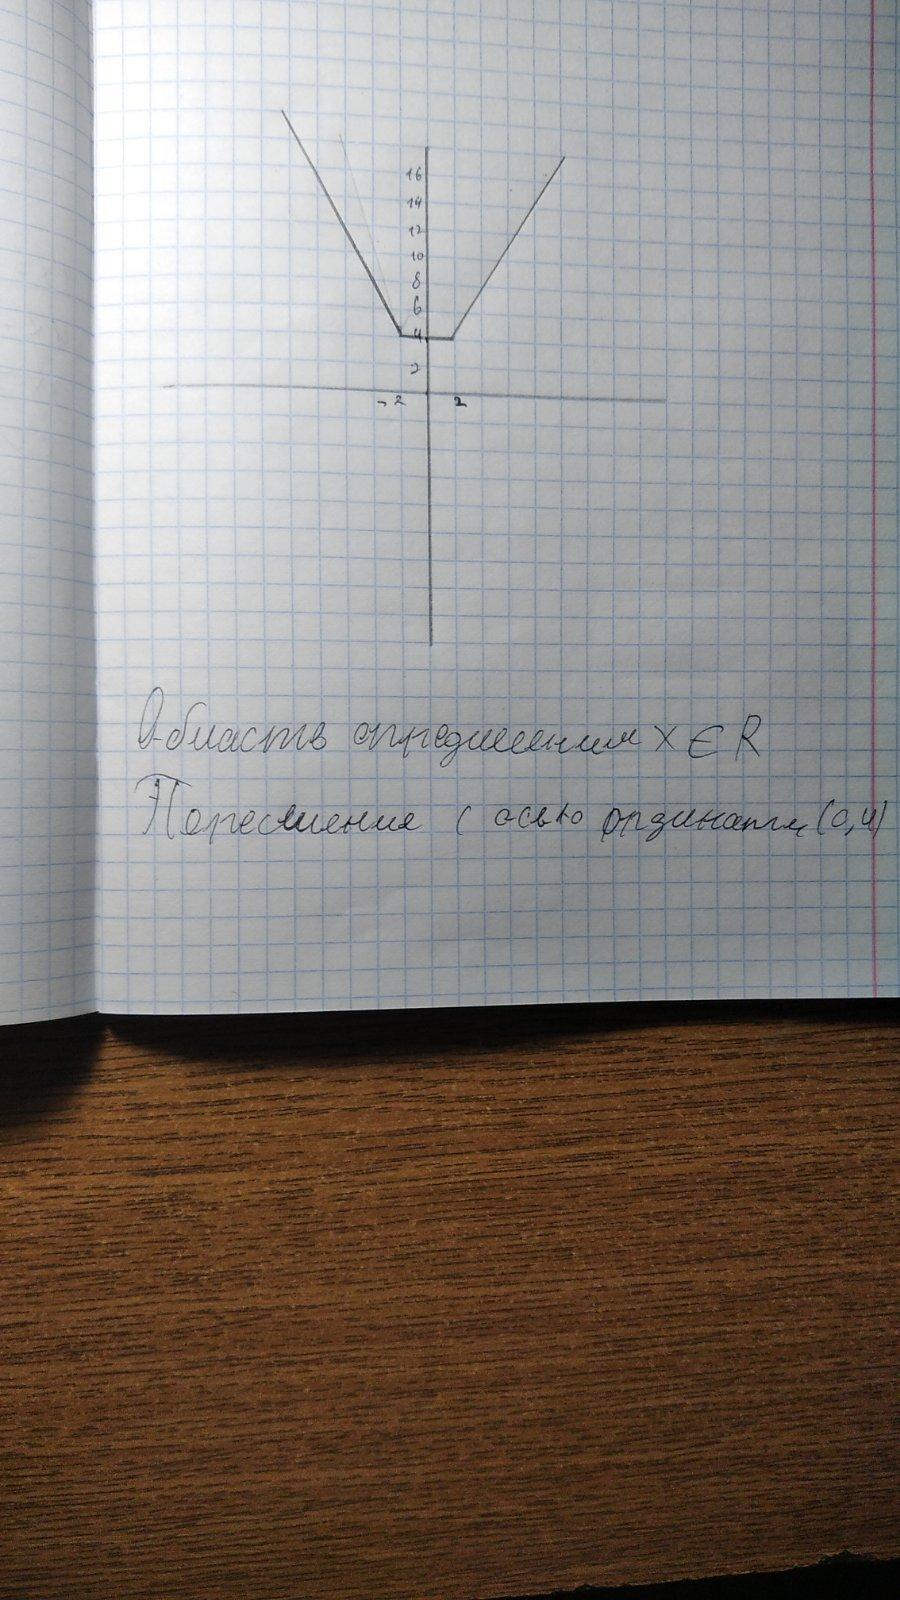 16
14
12
10
8
6
4
2
-2 2
Область определения x ∈ R
Пересечения с осью ординаты (0,4)